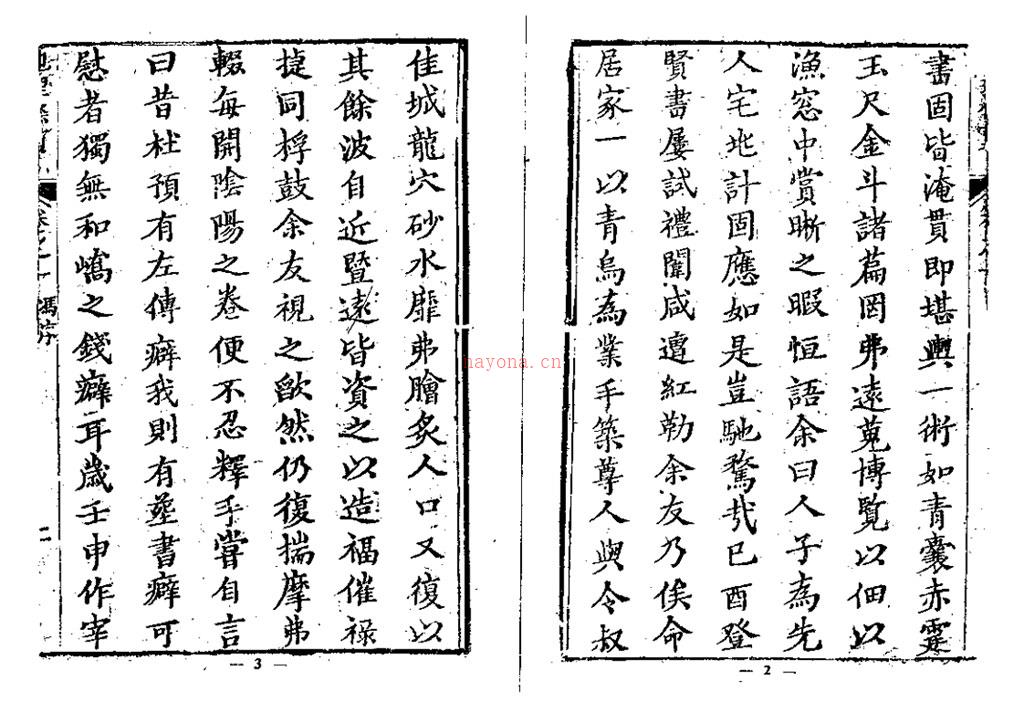 書固皆淹貫即堪輿一術如青囊赤霆
玉尺金斗諸篇罔弗遠蒐博覽以佃以
漁窓中賞晰之暇恒語余曰人子為先
人宅兆計固應如是豈馳騖哉己酉登
賢書屢試禮闈咸遭紅勒余友乃俟命
居家一以青烏為業手築尊人與令叔
— 2 —
佳城龍穴砂水靡弗膾炙人口又復以
其餘波自近暨遠皆資之以造福催祿
捷同桴鼓余友視之歉然仍復揣摩弗
輟每開陰陽之卷便不忍釋手嘗自言
曰昔杜預有左傳癖我則有塟書癖可
慰者獨無和嶠之錢癖耳歲壬申作宰
卷之一 馮序 二
— 3 —
nayona.cn